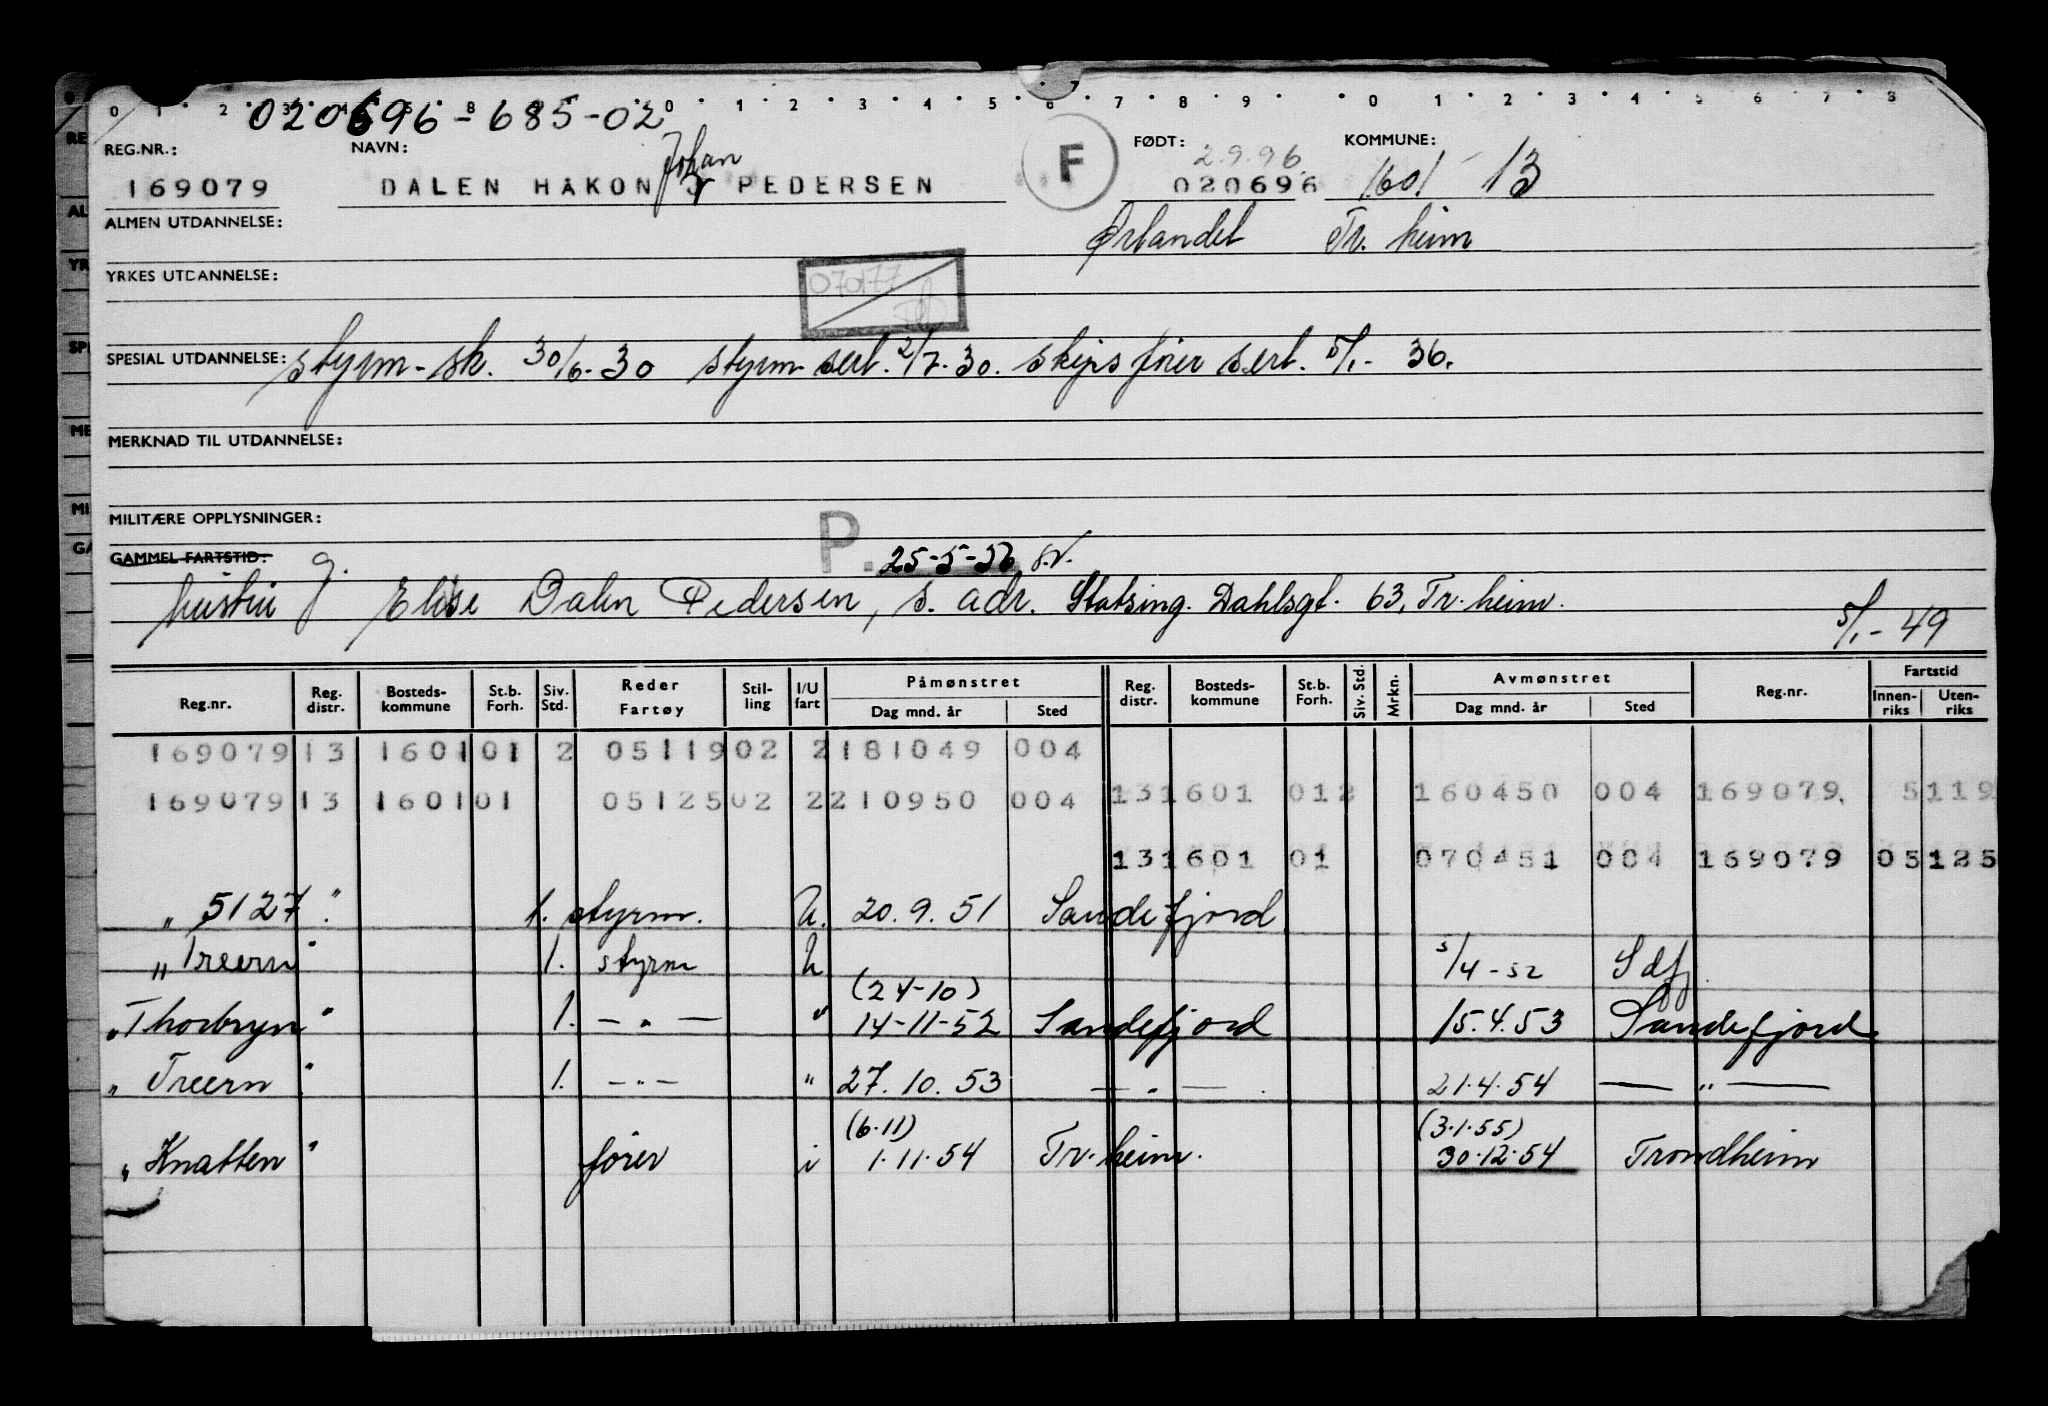 0 1 2 3 4 5 8 0 1 2 3 4 5 6 7 8 9 0 1 2 3 4 5 6 7 8
020696-685-02
REG.NR.: NAVN: Johan F FØDT: 2.9.96 KOMMUNE:
169079 DALEN HÅKON J PEDERSEN 020696 1601 - 13
ALMEN UTDANNELSE: Ørlandet Tr. heim
YRKES UTDANNELSE: 070177
SPESIAL UTDANNELSE: styrm-sk. 30/6-30 styrm sert. 2/7-30. skipsfører sert. 5/1- 36.
MERKNAD TIL UTDANNELSE:
MILITÆRE OPPLYSNINGER: P.
GAMMEL FARTSTID: g. 25-5-56
hustru Elise Dalen Pedersen, s. adr. Statsing. Dahlsgt. 63, Tr. heim.
5/1- 49
Reg.nr. Reg. distr. Bosteds-kommune St.b. Forh. Siv. Std. Reder Fartøy Stil-ling I/U fart Påmønstret Dag mnd. år Sted Reg. distr. Bosteds-kommune St.b. Forh. Siv. Std. Mrkn. Avmønstret Dag mnd. år Sted Reg.nr. Fartstid Innen-riks Uten-riks
169079 13 1601 01 2 05119 02 2 181049 004
169079 13 1601 01 05125 02 2 210950 004 13 1601 01 2 160450 004 169079 5119
13 1601 01 070451 004 169079 05125
" 5127 " 1. styrm. U. 20.9.51 Sandefjord
" Treern " 1. styrm U 5/4-52 Sdfj.
(24-10)
" Thorbryn " 1. - " - " 14-11-52 Sandefjord 15.4.53 Sandefjord
" Treern " 1. - " - " 27.10.53 - " - 21.4.54 - " -
(6.11) (3.1.55)
" Knatten " fører i 1.11.54 Tr. heim. 30.12.54 Trondheim